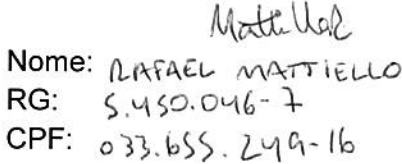 Nome: RAFAEL MATTIELLO
RG: 5.450.046-7
CPF: 033.655.249-16